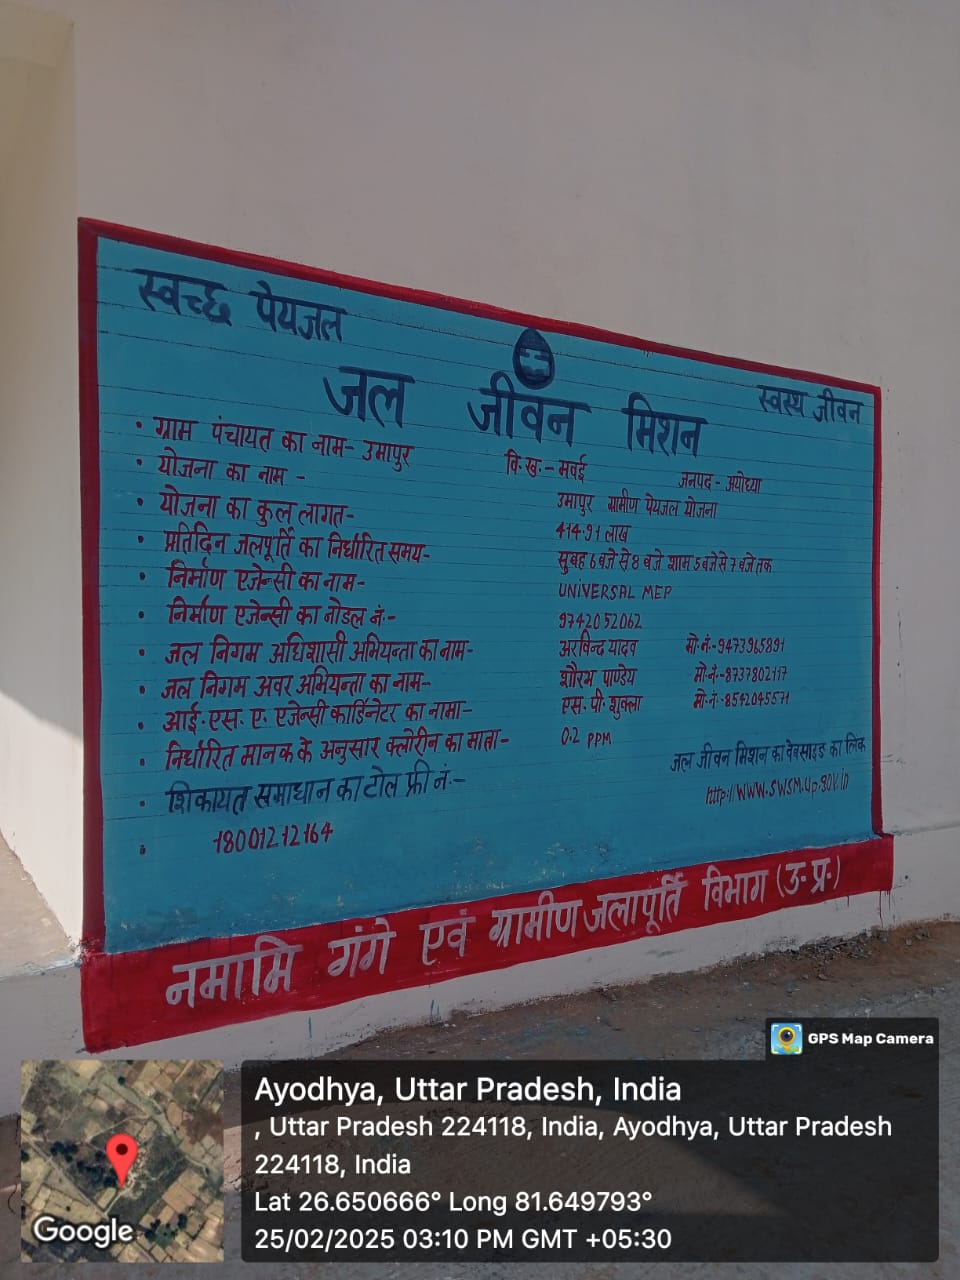 स्वच्छ पेयजल
स्वस्थ जीवन
जल जीवन मिशन
• ग्राम पंचायत का नाम- उमापुर वि.ख.- मवई जनपद- अयोध्या
• योजना का नाम - उमापुर ग्रामीण पेयजल योजना
• योजना का कुल लागत- 414.91 लाख
• प्रतिदिन जलपूर्ति का निर्धारित समय- सुबह 6 बजे से 8 बजे शाम 5 बजे से 7 बजे तक
• निर्माण एजेन्सी का नाम- UNIVERSAL MEP
• निर्माण एजेन्सी का नोडल नं.- 9742052062
• जल निगम अधिशासी अभियन्ता का नाम- अरविन्द यादव मो.नं.-9473965891
• जल निगम अवर अभियन्ता का नाम- शौरभ पाण्डेय मो.नं.-8737802117
• आई.एस.ए. एजेन्सी कार्डिनेटर का नामा- एस.पी. शुक्ला मो.नं.-8542045571
• निर्धारित मानक के अनुसार क्लोरीन का माता- 0.2 PPM
• शिकायत समाधान का टोल फ्री नं.-
• 18001212164
जल जीवन मिशन का वेबसाइड का लिंक
http://WWW.SWSM.Up.gov.in
नमामि गंगे एवं ग्रामीण जलापूर्ति विभाग (उ.प्र.)
GPS Map Camera
Ayodhya, Uttar Pradesh, India
, Uttar Pradesh 224118, India, Ayodhya, Uttar Pradesh
224118, India
Lat 26.650666° Long 81.649793°
25/02/2025 03:10 PM GMT +05:30
Google